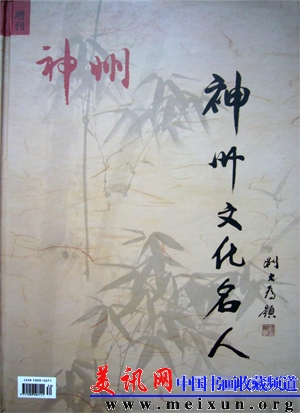 增刊
神州
神州文化名人
刘大为题
美讯网 中国书画收藏频道
www.meixun.org